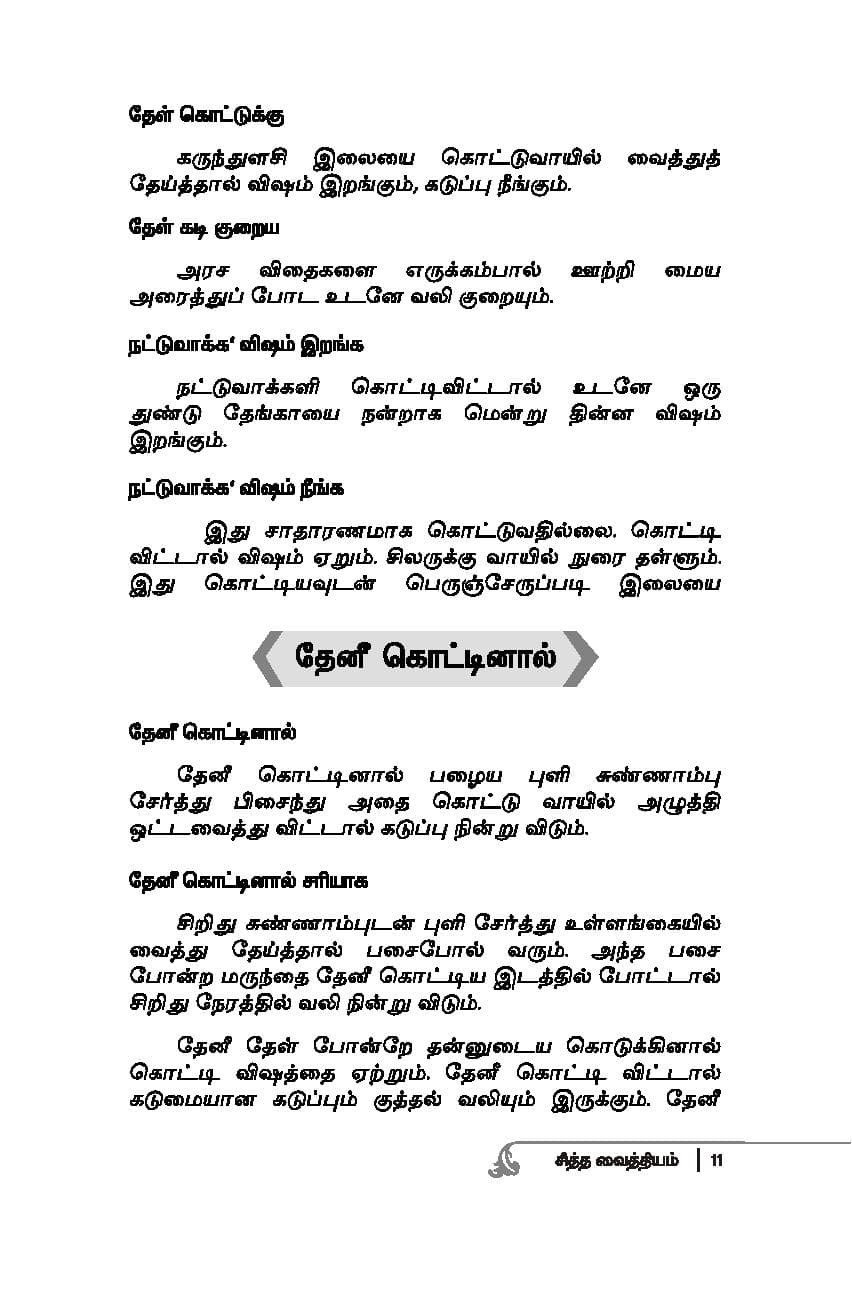 தேள் கொட்டுக்கு
கருந்துளசி இலையை கொட்டுவாயில் வைத்துத்
தேய்த்தால் விஷம் இறங்கும், கடுப்பு நீங்கும்.
தேள் கடி குறைய
அரச விதைகளை எருக்கம்பால் ஊற்றி மைய
அரைத்துப் போட உடனே வலி குறையும்.
நட்டுவாக்க‘ விஷம் இறங்க
நட்டுவாக்களி கொட்டிவிட்டால் உடனே ஒரு
துண்டு தேங்காயை நன்றாக மென்று தின்ன விஷம்
இறங்கும்.
நட்டுவாக்க‘ விஷம் நீங்க
இது சாதாரணமாக கொட்டுவதில்லை. கொட்டி
விட்டால் விஷம் ஏறும். சிலருக்கு வாயில் நுரை தள்ளும்.
இது கொட்டியவுடன் பெருஞ்சேருப்படி இலையை
தேனீ கொட்டினால்
தேனீ கொட்டினால்
தேனீ கொட்டினால் பழைய புளி சுண்ணாம்பு
சேர்த்து பிசைந்து அதை கொட்டு வாயில் அழுத்தி
ஒட்டவைத்து விட்டால் கடுப்பு நின்று விடும்.
தேனீ கொட்டினால் சரியாக
சிறிது சுண்ணாம்புடன் புளி சேர்த்து உள்ளங்கையில்
வைத்து தேய்த்தால் பசைபோல் வரும். அந்த பசை
போன்ற மருந்தை தேனீ கொட்டிய இடத்தில் போட்டால்
சிறிது நேரத்தில் வலி நின்று விடும்.
தேனீ தேள் போன்றே தன்னுடைய கொடுக்கினால்
கொட்டி விஷத்தை ஏற்றும். தேனீ கொட்டி விட்டால்
கடுமையான கடுப்பும் குத்தல் வலியும் இருக்கும். தேனீ
சித்த வைத்தியம் 11